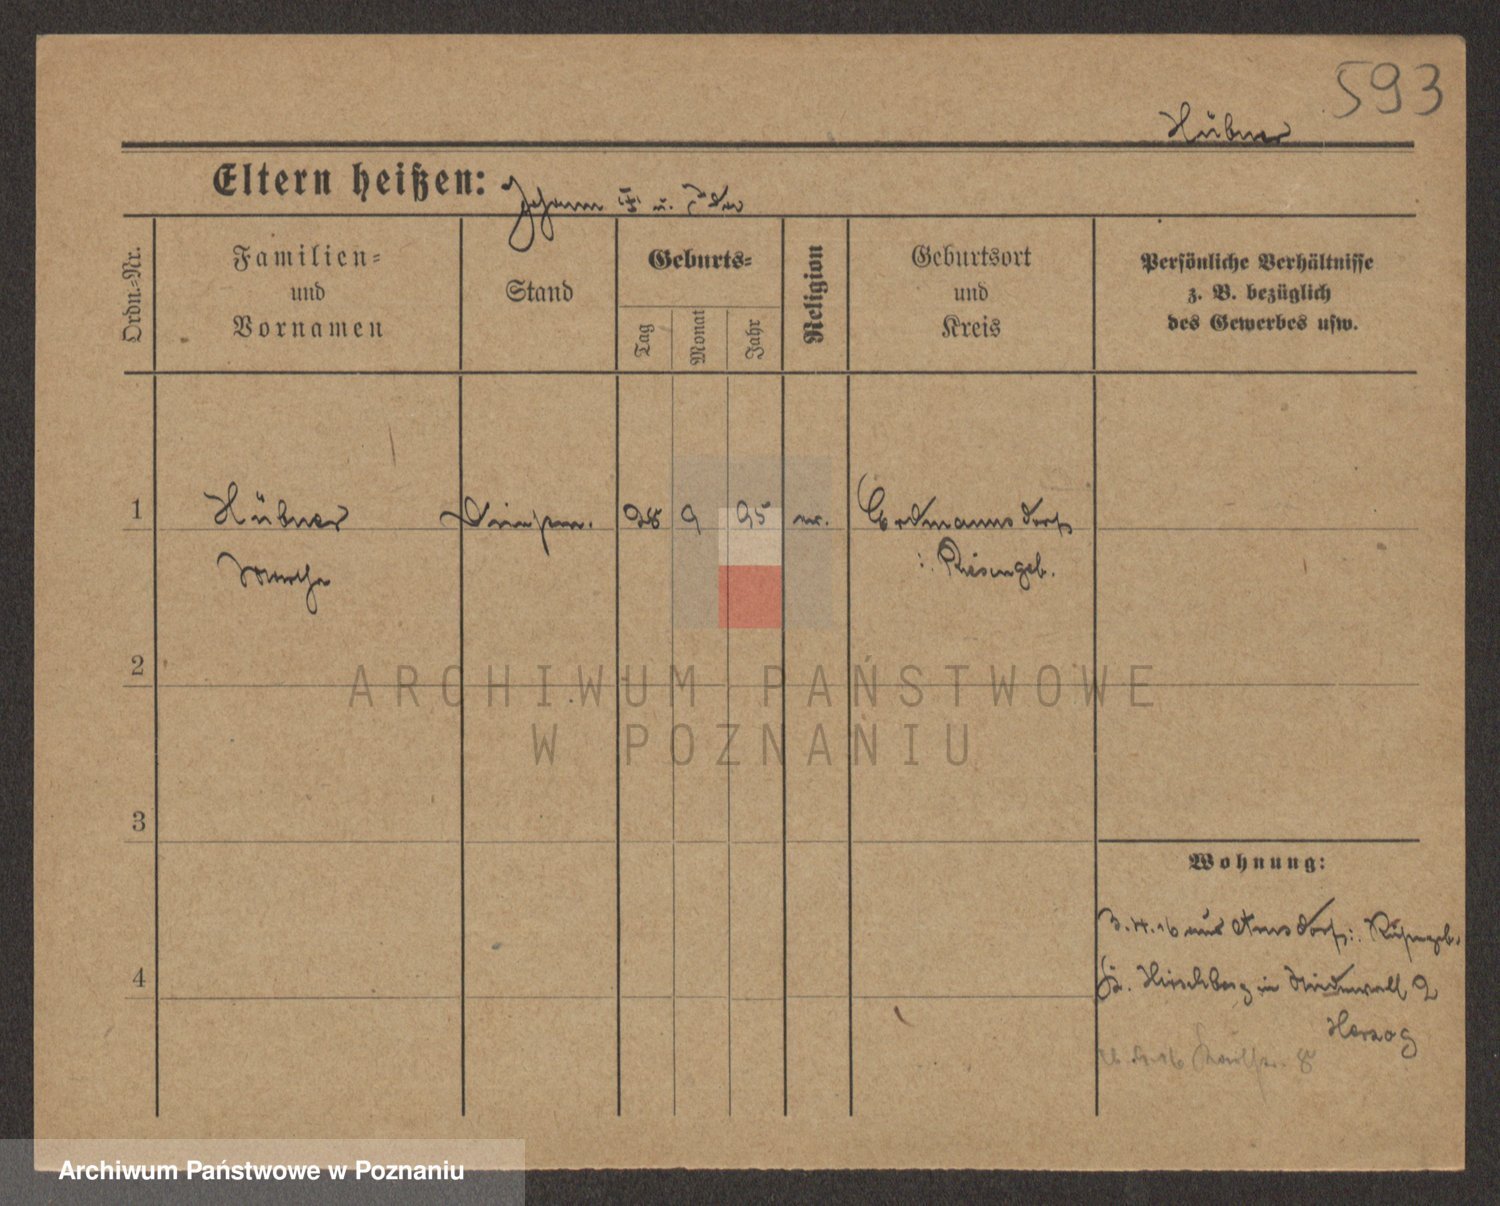 593
Hübner
Eltern heißen: Johann u.
Ordn.-Nr.
Familien-
und
Vornamen
Stand
Geburts-
Tag
Monat
Jahr
Religion
Geburtsort
und
Kreis
Persönliche Verhältnisse
z. B. bezüglich
des Gewerbes usw.
1
Hübner
Martha
28 9 95
ev.
Erdmannsdorf
i. Riesengeb.
2
3
4
Wohnung:
3.4.16 aus Arnsdorf i. Riesengeb.
Hirschberg in 2
Herzog
8
ARCHIWUM PAŃSTWOWE
W POZNANIU
Archiwum Państwowe w Poznaniu